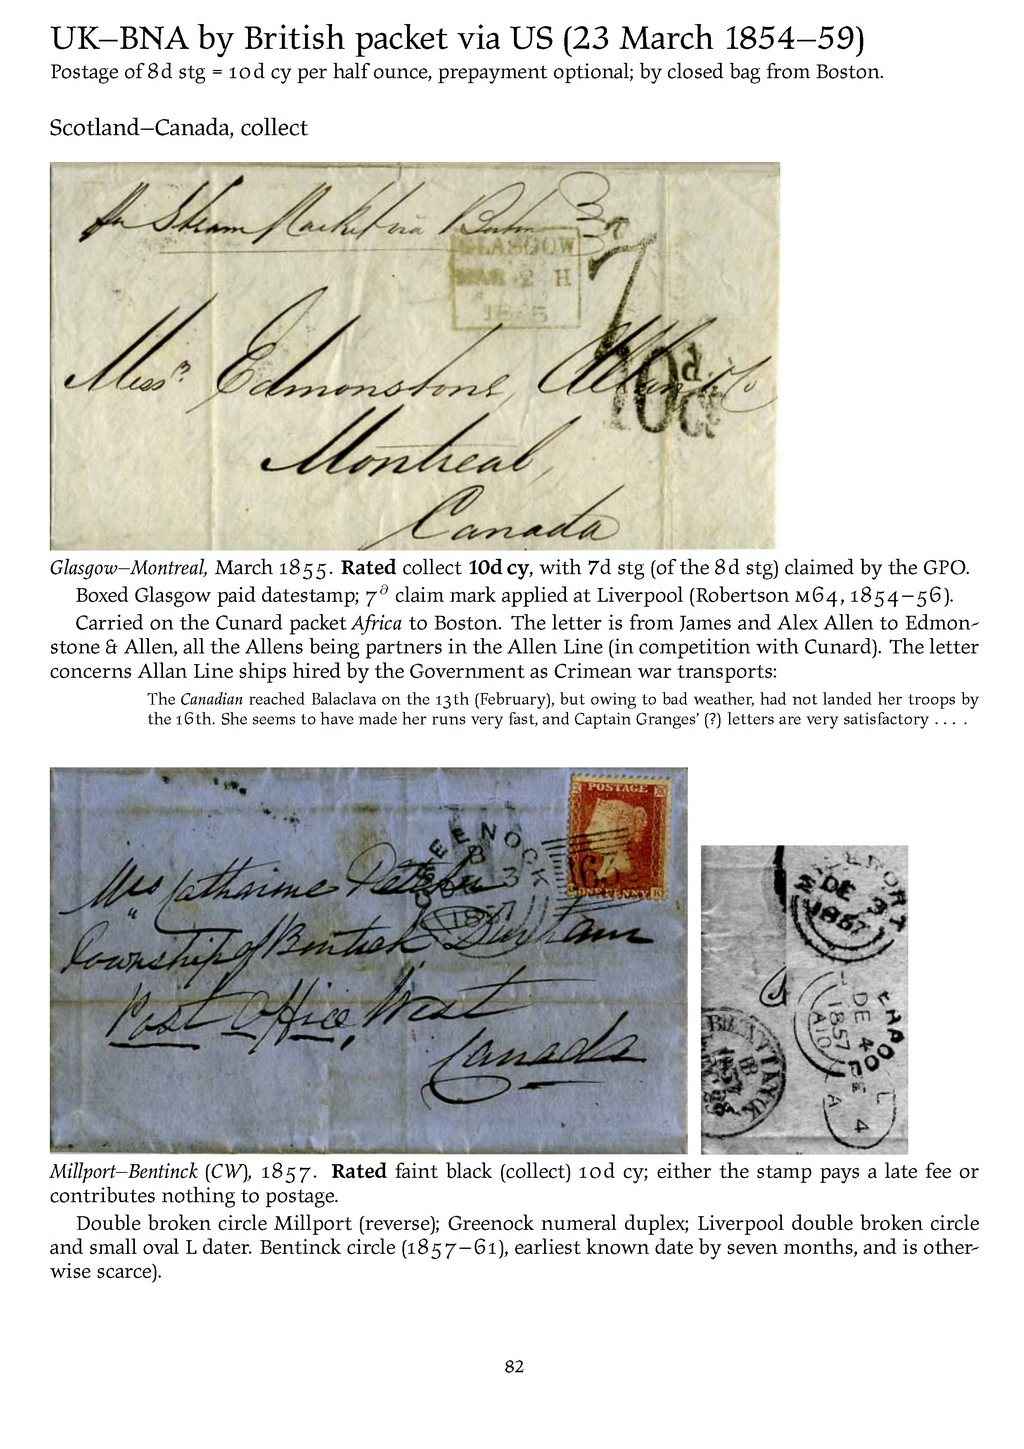 UK–BNA by British packet via US (23 March 1854–59)
Postage of 8d stg = 10d cy per half ounce, prepayment optional; by closed bag from Boston.
Scotland–Canada, collect
Steam Packet via Boston
GLASGOW
MAR 2 H
7
Messrs Edmonstone, Allan & Co
10d
Montreal,
Canada
Glasgow–Montreal, March 1855. Rated collect 10d cy, with 7d stg (of the 8d stg) claimed by the GPO.
Boxed Glasgow paid datestamp; 7∂ claim mark applied at Liverpool (Robertson M64, 1854–56).
Carried on the Cunard packet Africa to Boston. The letter is from James and Alex Allen to Edmon-
stone & Allen, all the Allens being partners in the Allen Line (in competition with Cunard). The letter
concerns Allan Line ships hired by the Government as Crimean war transports:
The Canadian reached Balaclava on the 13th (February), but owing to bad weather, had not landed her troops by
the 16th. She seems to have made her runs very fast, and Captain Granges’ (?) letters are very satisfactory . . . .
POSTAGE
ONE PENNY
GREENOCK
1857
Mrs Catharine
Township of Bentick Durham
Post Office, West
Canada
MILLPORT
DE 3
1857
DE 4
1857
A10
L
4
A
Millport–Bentinck (CW), 1857. Rated faint black (collect) 10d cy; either the stamp pays a late fee or
contributes nothing to postage.
Double broken circle Millport (reverse); Greenock numeral duplex; Liverpool double broken circle
and small oval L dater. Bentinck circle (1857–61), earliest known date by seven months, and is other-
wise scarce).
82